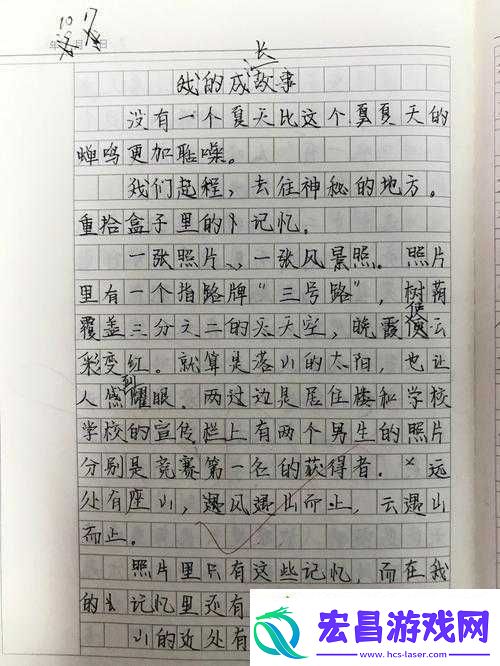 10 17
年 月 日
长
我的成故事
没有一个夏天比这个夏夏天的
蝉鸣更加聒噪。
我们起程，去往神秘的地方。
重拾盒子里的记忆。
一张照片、一张风景照。照片
里有一个指路牌“三号路”，树荫
覆盖三分之二的天空，晚霞使云
彩变红。就算是落山的太阳，也让
人感到耀眼。两过边是居住楼和学校
学校的宣传栏上有两个男生的照片
分别是竞赛第一名的获得者。远
处有座山，遇风遇山而止，云遇山
而止。
照片里只有这些记忆，而在我
的记忆里还有
山的近处有
宏昌游戏网
www.hcs-laser.com